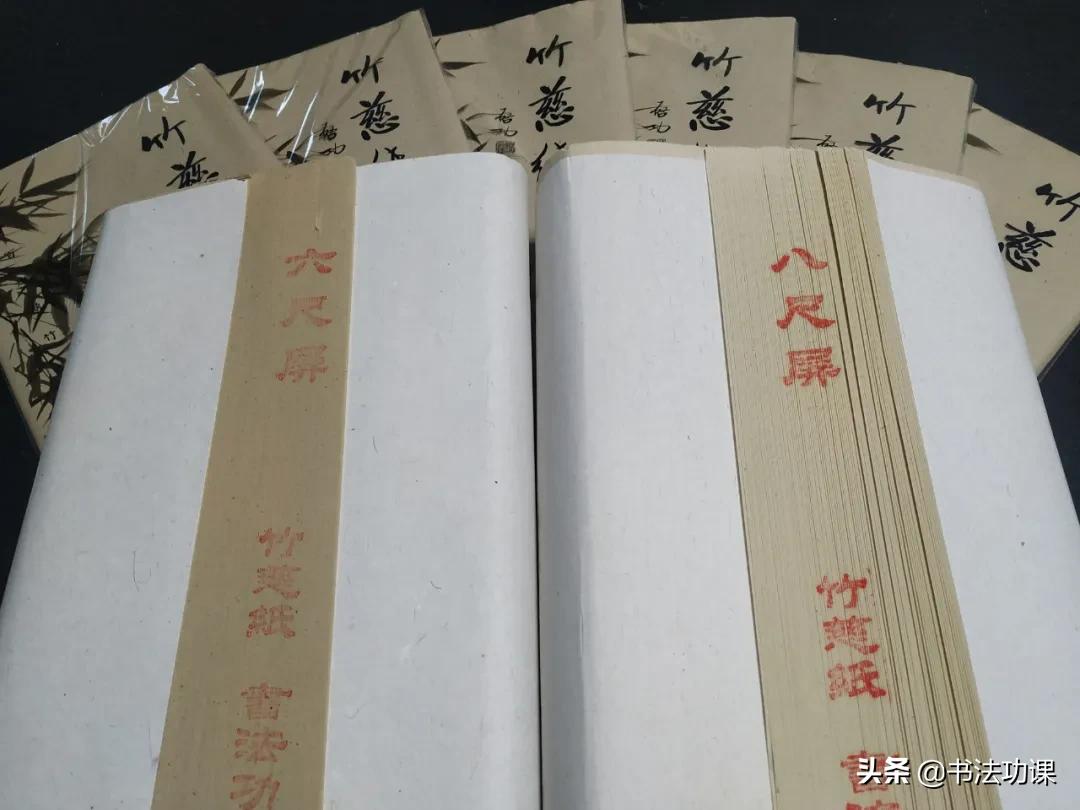 竹慈
竹慈
启功
竹慈
启功
竹慈
启功
竹慈
竹慈
六尺屏
竹慈紙
書法功
八尺屏
竹慈紙
書
头条 @书法功课